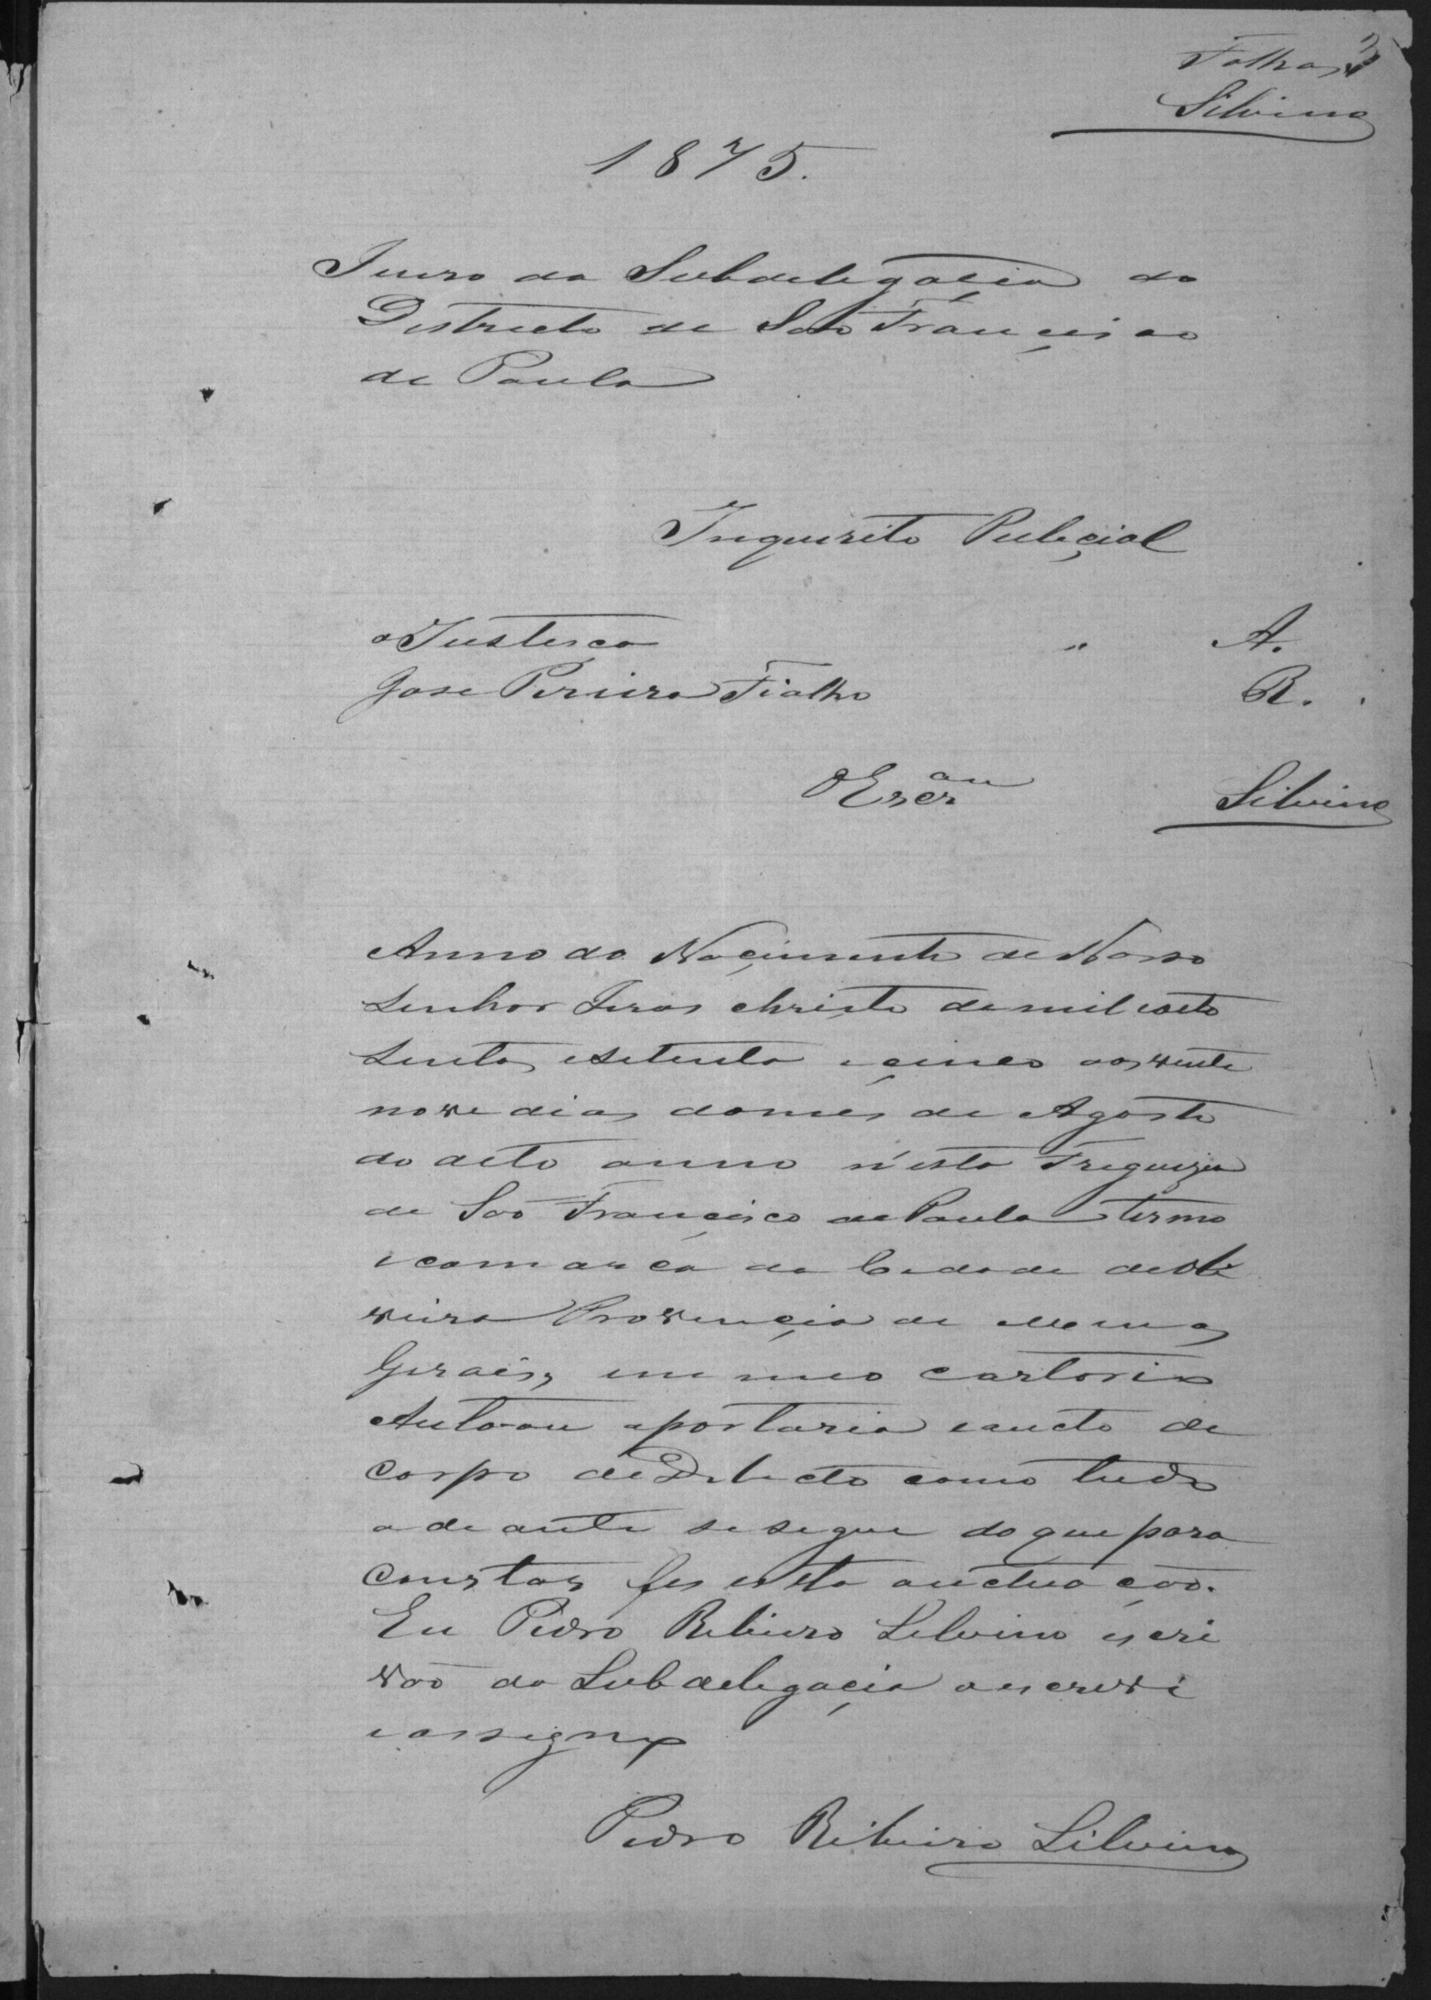 Folhas
Silvino
1875.
Juiso da Subdelegaçia do
Districto de São Françisco
de Paula
Inquerito Puliçial
a Justisca
A.
Jose Pereira Fialho
R.
O Escr.am
Silvino
Anno do Naçimento de Nosso
Senhor Jesos Christo de mil e oito
sentos e setenta e çinco aos vente
nove dias do mes de Agosto
do dito anno n'esta Freguezia
de São Françisco de Paula termo
e comarca da Cedade de Oli
veira Provinçia de Menas
Geraes, em meo cartorio
Autoou a portaria e aucto de
corpo de Delicto como tudo
adeante se segue do que para
constar fes esta auctuação.
Eu Pedro Ribeiro Silvino escri
vão da Subdelegaçia a escrevi
e assigno
Pedro Ribeiro Silvino